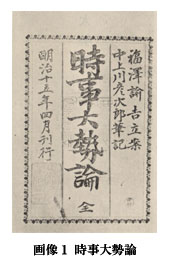 福澤諭吉立案
中上川彦次郎筆記
時事大勢論 全
明治十五年四月刊行
画像1 時事大勢論